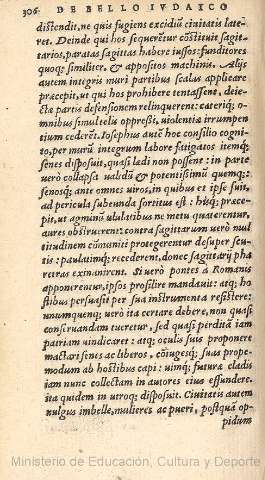 306. DE BELLO IVDAICO
distendit, ne quis fugiens excidiũ ciuitatis late-
ret. Deinde qui hos sequerẽtur cõstituit sagit-
tarios, paratas sagittas habere iussos: funditores
quoq; similiter. & appositos machinis. Alijs
autem integris muri partibus scalas applicare
præcepit, ut qui hos prohibere tentassent, deie-
ctæ partis defensionem relinquerent: cæteriq; o-
mnibus simul telis oppressi, uiolentiæ irrumpen
tium cederẽt. Iosephus autẽ hoc consilio cognı-
to, per murũ integrum labore fatigatos itemq;
senes disposuit, quasi lædi non possent: in parte
uerò collapsa ualidũ & potentissimũ quemq;:
senosq; ante omnes uiros, in quibus et ipse fuit,
ad pericula subeunda sortitus est: hisq; præce-
pit, ut agminũ ululatibus ne metu quaterentur,
aures obstruerent: contra sagittarum uerò mul
titudinem cõmuniti protegerentur desuper scu-
tis: paulatimq; recederent, donec sagittarij pha
retras exinanirent. Si uerò pontes à Romanis
apponerentur, ipsos prosilire mandauit: atq; ho
stibus persuasit per sua instrumenta resistere:
unumquenq; uerò ita certare debere, non quasi
conseruandam tueretur, sed quasi perditã iam
patriam uindicaret: atq; oculis suis proponere
mactari senes ac liberos, cõiugesq; suas prope-
modum ab hostibus capi: uimq; futuræ cladis
iam nunc collectam in autores eius effundere.
ita quidem in utroq; disposuit. Ciuitatis autem
uulgus imbelle, mulieres ac pueri, postquã op-
pidum
Ministerio de Educación, Cultura y Deporte